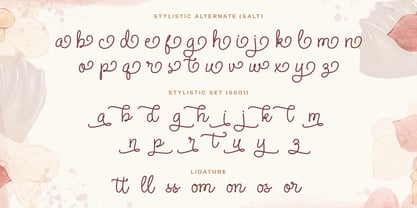 STYLISTIC ALTERNATE (SALT)
a b c d e f g h i j k l m
o p q r s t u v w x y z
STYLISTIC SET (SS01)
a b d g h i j k l m
n p r t u y z
LIGATURE
tt ll ss om on os or